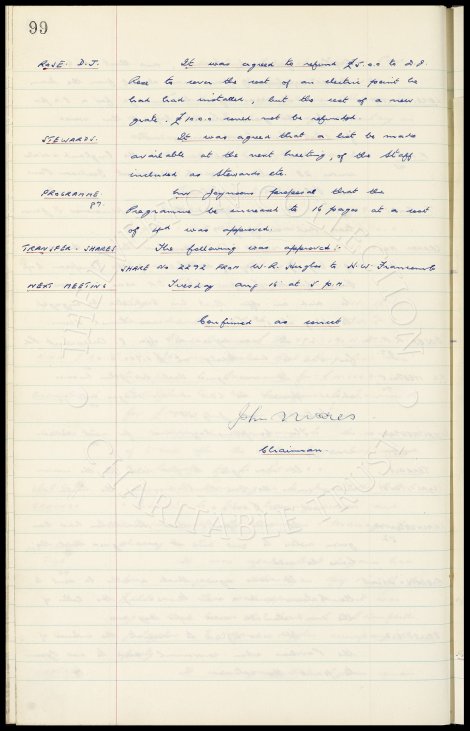 99
ROSE: D.J. It was agreed to refund £5.0.0 to D.J.
Rose to cover the cost of an electric point he
had had installed, but the cost of a new
grate. £10.0.0 could not be refunded.
STEWARDS. It was agreed that a list be made
available at the next meeting, of the Staff
included as Stewards etc.
PROGRAMME. Mr Jaynsons proposal that the
87. Programme be increased to 16 pages at a cost
of 4d was approved.
TRANSFER - SHARES The following was approved:-
SHARE No 2292 FROM W.R. Hughes to H.W.
NEXT MEETING Tuesday Aug 16 at 5 p.m.
Confirmed as correct
John Moores
Chairman
THE EVERTON COLLECTION
CHARITABLE TRUST